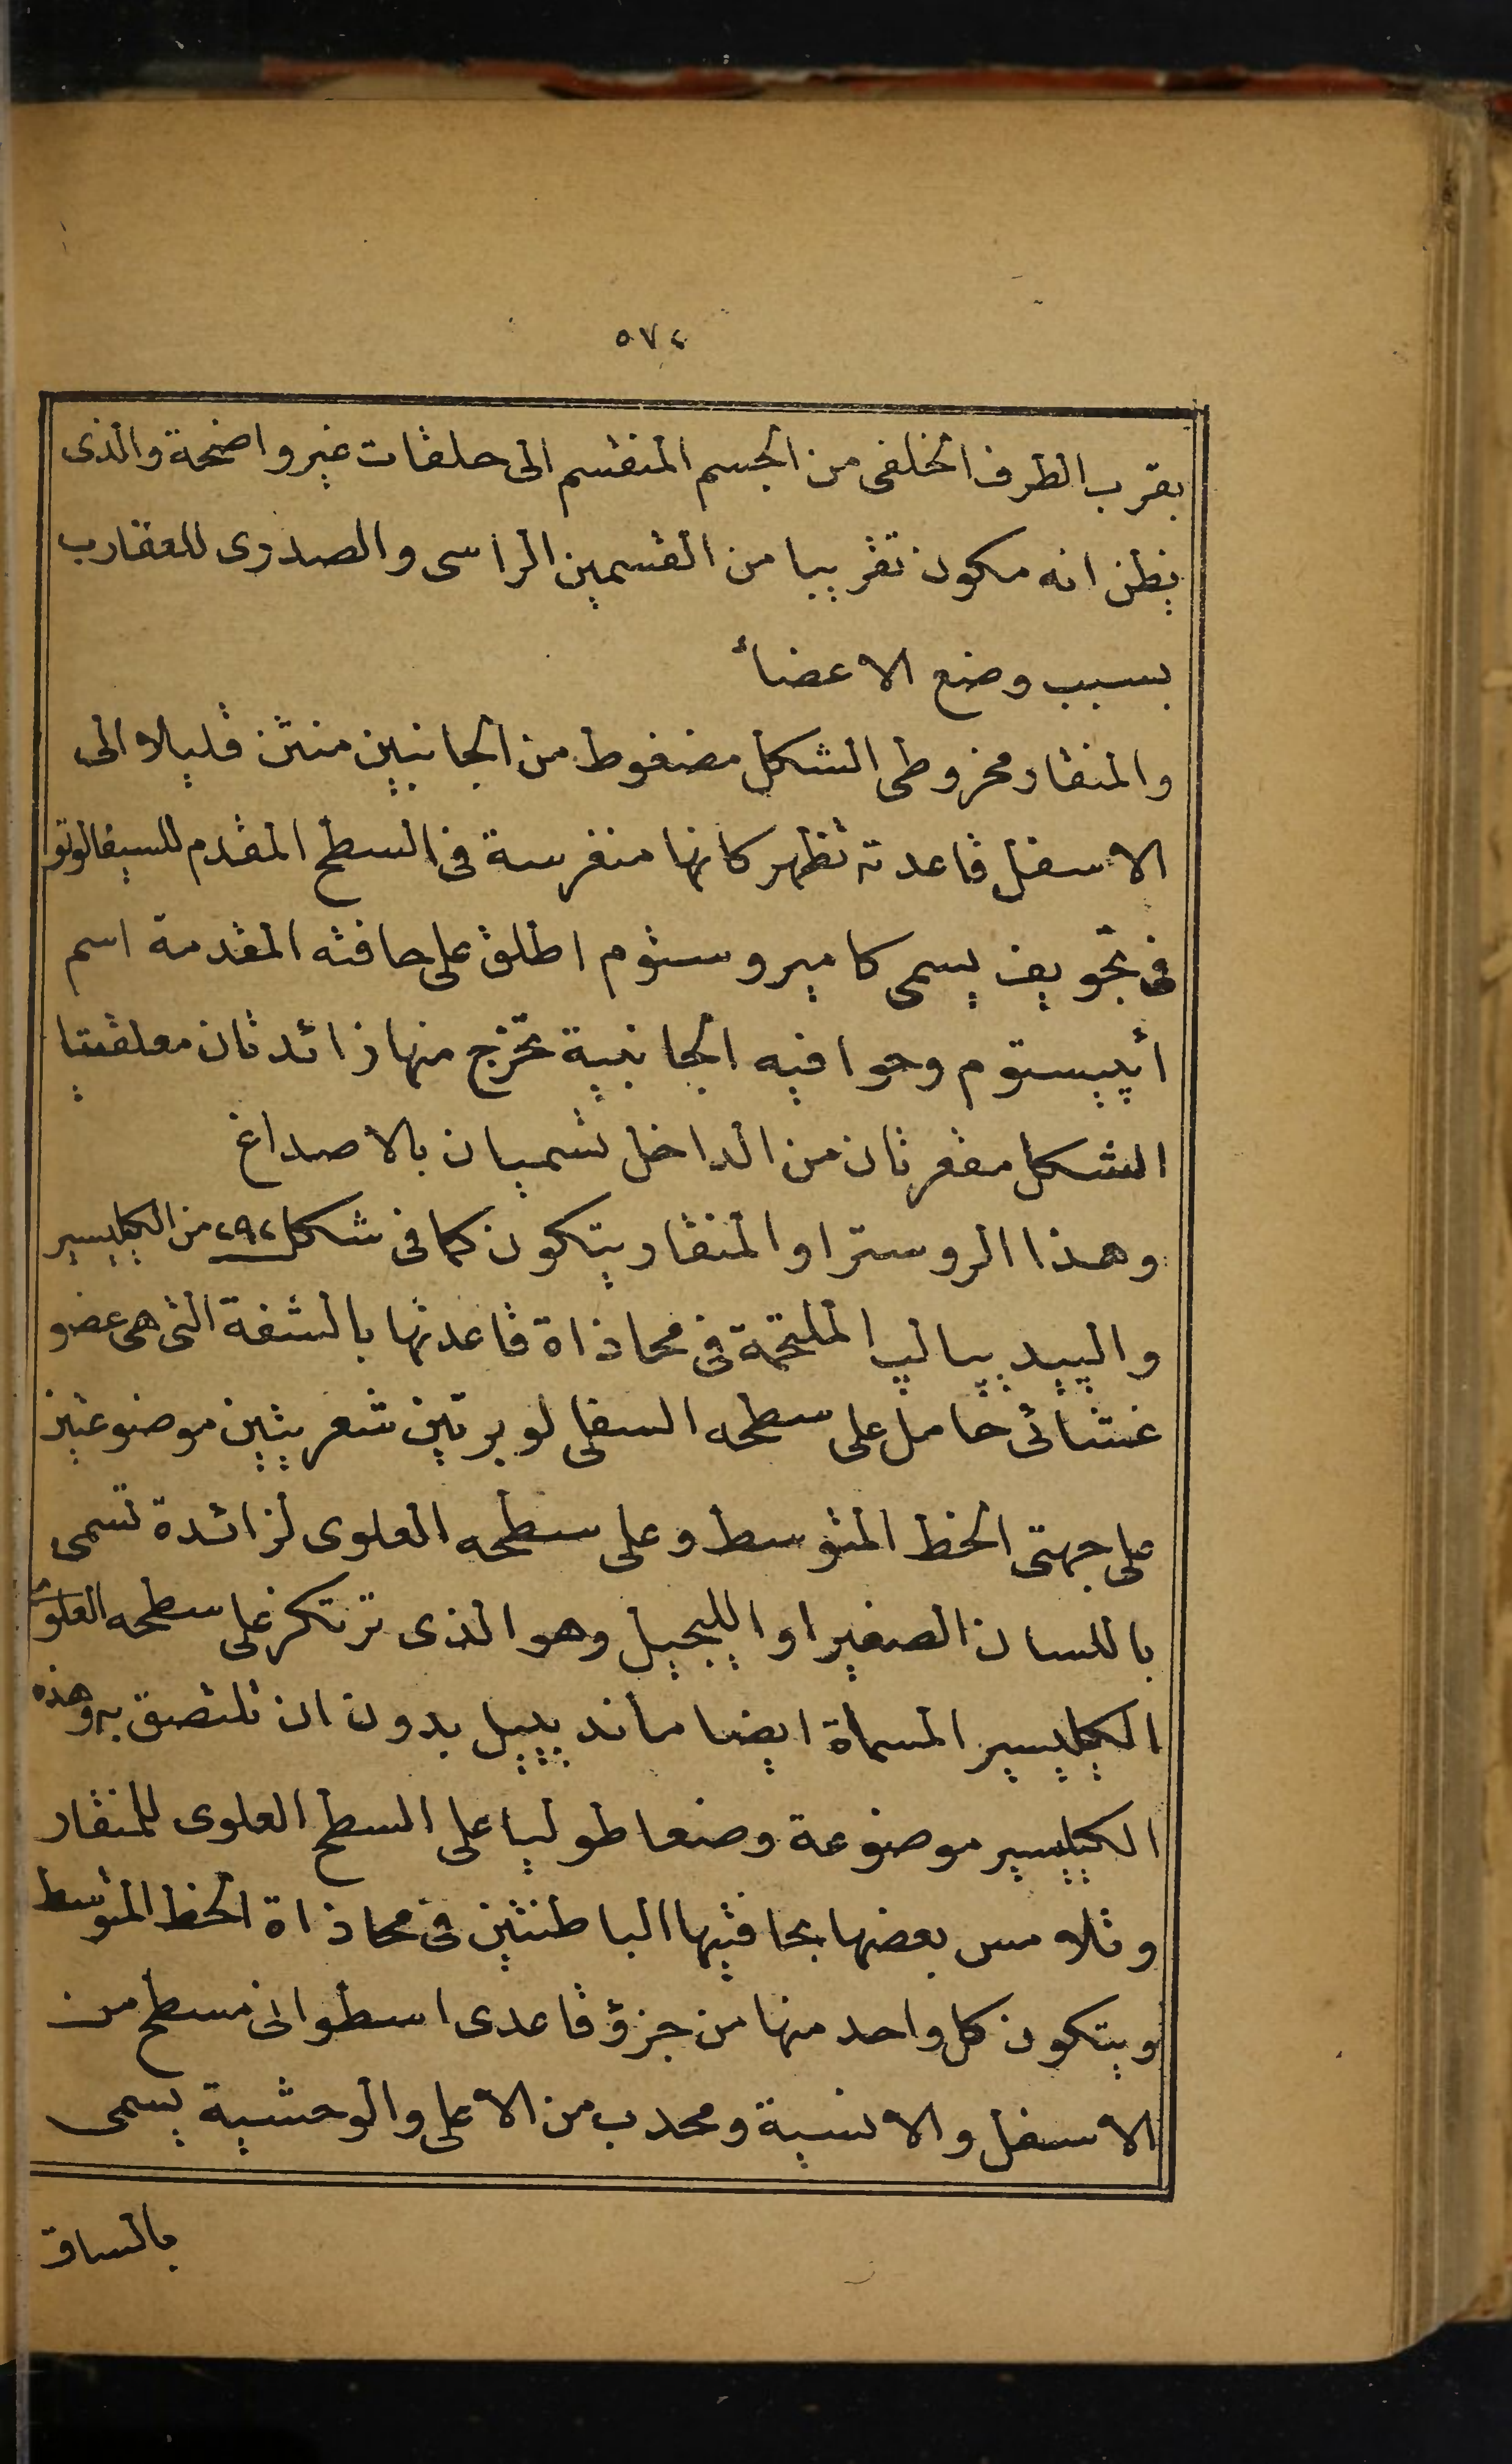 ٥٧٤
بقرب الطرف الخلفى من الجسم المنقسم الى حلقات غير واضحة والذى
يظن انه مكون تقريبا من القسمين الراسى والصدرى للعقارب
بسبب وضع الاعضاء
والمنقار مخروطى الشكل مضغوط من الجانبين منثن قليلا الى
الاسفل قاعدته تظهر كانها منغرسة فى السطح المقدم للسيفالوتو
فى تجويف يسمى كاميروستوم اطلق على حافته المقدمة اسم
أيپيستوم وحوافيه الجانبية تخرج منها زائدتان معلقيتا
الشكل مقعرتان من الداخل تسميان بالاصداغ
وهذا الروسترا والمنقار يتكون كما فى شكل ٢٩٢ من الكيليسير
والپيديپالپ الملتحمة فى محاذاة قاعدتها بالشفة التى هى عضو
غشائى حامل على سطحه السفلى لوبرتين شعريتين موضوعتين
على جهتى الخط المتوسط وعلى سطحه العلوى لزائدة تسمى
باللسان الصغير او الليجيل وهو الذى ترتكز على سطحه العلوى
الكيليسير المسماة ايضا مانديبيل بدون ان تلتصق به وهذه
الكيليسير موضوعة وضعا طوليا على السطح العلوى للمنقار
وتلامس بعضها بحافتيها الباطنتين فى محاذاة الخط المتوسط
ويتكون كل واحد منها من جزؤ قاعدى اسطوانى مسطح من
الاسفل والانسية ومحدب من الاعلى والوحشية يسمى
بالساق